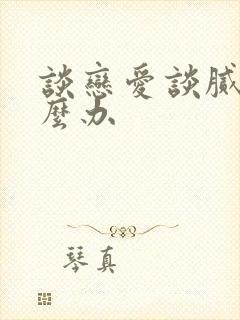 談戀愛談膩
麼办
琴真